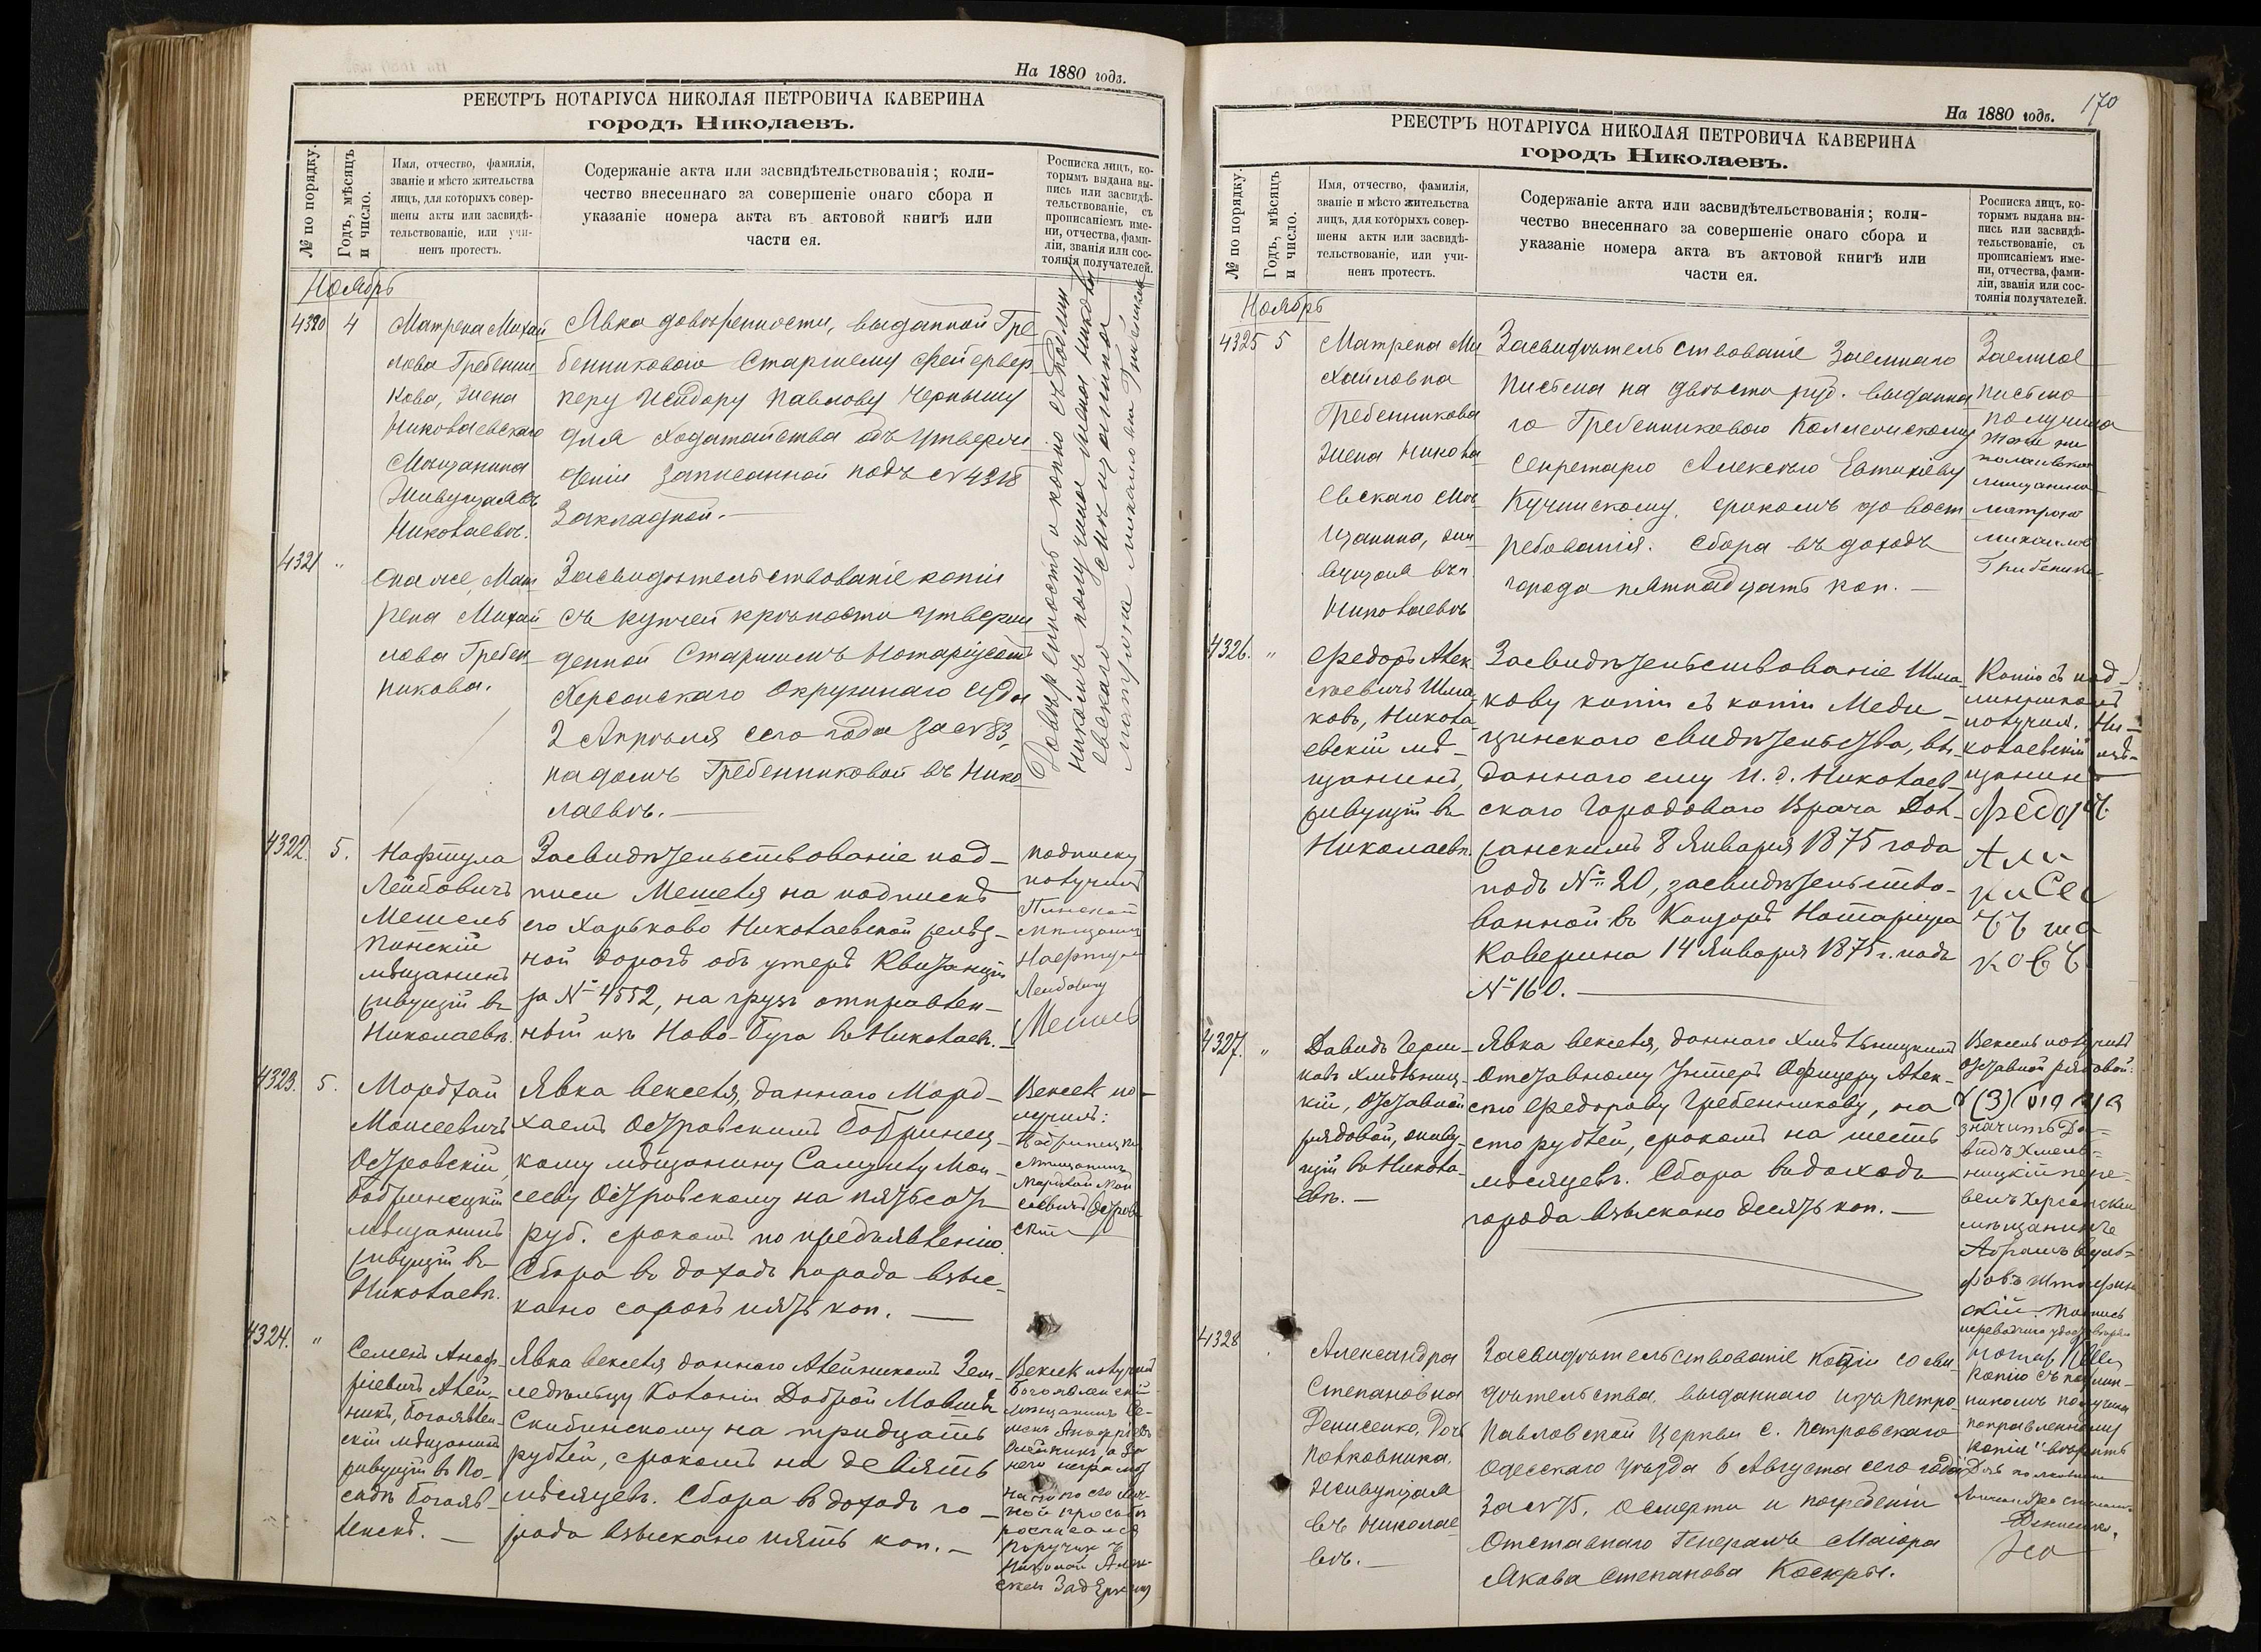 На 1880 годъ.
РЕЕСТРЪ НОТАРІУСА НИКОЛАЯ ПЕТРОВИЧА КАВЕРИНА
городъ Николаевъ.
№ по порядку.
Годъ, мѣсяцъ
и число.
Имя, отчество, фамилія,
званіе и мѣсто жительства
лицъ, для которыхъ совер-
шены акты или засвидѣ-
тельствованіе, или учи-
ненъ протестъ.
Содержаніе акта или засвидѣтельствованія; коли-
чество внесеннаго за совершеніе онаго сбора и
указаніе номера акта въ актовой книгѣ или
части ея.
Росписка лицъ, ко-
торымъ выдана вы-
пись или засвидѣ-
тельствованіе, съ
прописаніемъ име-
ни, отчества, фами-
ліи, званія или сос-
тоянія получателей.
Ноябрь
4320
4
Матрена Михай
лова Гребенни-
кова, жена
Николаевскаго
Мѣщанина
Живущая въ
Николаевѣ.
Явка довѣренности, выданной Гре-
бенниковою Старшему Фейервер-
керу Исидору Павлову Чернышу
для ходатайства объ утверж-
деніи записанной подъ № 4318
Закладной.
Довѣренность и копію съ подлин
никомъ получила жена никола
евскаго мѣщанина
матрона михаилова Гребеникова
4321
"
Она же, Мат
рена Михай-
лова Гребен-
никова.
Засвидѣтельствованіе копіи
съ купчей крѣпости утверж-
денной Старшимъ Нотаріусомъ
Херсонскаго Окружнаго Суда
2 Апрѣля сего года за № 83,
на домъ Гребенниковой въ Нико
лаевѣ.
4322.
5.
Нафтула
Лейбовичъ
Мешель
Пинскій
мѣщанинъ
живущій въ
Николаевѣ.
Засвидѣтельствованіе под-
писи Мешеля на подпискѣ
его Харьково Николаевской желѣз-
ной дорогѣ объ утерѣ квитанціи
за № 4552, на грузъ отправлен-
ный изъ Ново-Буга въ Николаевъ.
подписку
получилъ
Пинской
Мещанинъ
Нафтула
Лейбович
Мешель
4323.
5.
Мордхай
Моисеевичъ
Островскій,
бобринецкій
мѣщанинъ
живущій въ
Николаевѣ.
Явка векселя, даннаго Морд-
хаемъ Островскимъ бобринец-
кому мѣщанину Самуилу Мои-
сееву Островскому на пятьсотъ
руб. срокомъ по предъявленію.
Сбора въ доходъ города взыс-
кано сорокъ пять коп.
Вексель по-
лучилъ:
Бобринецки
Мещанинъ
Мардхай Мои
сеевичъ Остров-
скій
4324.
"
Семенъ Аноф-
ріевичъ Алей-
никъ, богоявлен-
скій мѣщанинъ
живущій въ По-
садѣ Богояв-
ленскѣ.
Явка векселя даннаго Алейникомъ Зем-
ледѣльцу Колоніи Доброй Мовшѣ
Скибинскому на тридцать
рублей, срокомъ на девять
мѣсяцевъ. Сбора въ доходъ го-
рода взыскано пять коп.
Вексель получилъ
Богоявленскій
мещанинъ Се-
менъ Анофріевъ
Олейникъ а за
него неграмот
наго по его лич-
ной просьбѣ
росписался
Поручикъ
Николай Алек-
170
На 1880 годъ.
РЕЕСТРЪ НОТАРІУСА НИКОЛАЯ ПЕТРОВИЧА КАВЕРИНА
городъ Николаевъ.
№ по порядку.
Годъ, мѣсяцъ
и число.
Имя, отчество, фамилія,
званіе и мѣсто жительства
лицъ, для которыхъ совер-
шены акты или засвидѣ-
тельствованіе, или учи-
ненъ протестъ.
Содержаніе акта или засвидѣтельствованія; коли-
чество внесеннаго за совершеніе онаго сбора и
указаніе номера акта въ актовой книгѣ или
части ея.
Росписка лицъ, ко-
торымъ выдана вы-
пись или засвидѣ-
тельствованіе, съ
прописаніемъ име-
ни, отчества, фами-
ліи, званія или сос-
тоянія получателей.
Ноябрь
4325
5
Матрена Ми
хайловна
Гребенникова
жена Никола-
евскаго мѣ-
щанина, жи-
вущая въ
Николаевѣ
Засвидѣтельствованіе Заемнаго
письма на двѣсти руб. выданна
го Гребенниковою Коллежскому
Секретарю Алексѣю Евтихіеву
Кучинскому, срокомъ до вост-
ребованія. Сбора въ доходъ
города пятнадцать коп.
Заемное
письмо
получила
жена ни
колаевскаго
мещанина
матрона
михаилов
Гребеника
4326.
"
Ѳедоръ Алек
сѣевичъ Шма
ковъ, Никола-
евскій мѣ-
щанинъ,
живущій въ
Николаевѣ.
Засвидѣтельствованіе Шма-
кову копіи съ копіи Меди-
цинскаго свидѣтельства, вы-
даннаго ему И. д. Николаев-
скаго Городоваго Врача Дол-
жанскимъ 8 Января 1875 года
подъ № 20, засвидѣтельство-
ванной въ Конторѣ Нотаріуса
Каверина 14 Января 1875 г. подъ
№ 160.
Копію съ под-
линникомъ
получилъ. Ни-
колаевскій мѣ-
щанинъ
Федоръ
Але
ксее
въ шма
ковъ
4327.
"
Давидъ Герш-
ковъ Хмѣльниц-
кій, отставной
рядовой, живу-
щій въ Никола-
евѣ.
Явка векселя, даннаго Хмѣльницкимъ
отставному Унтеръ Офицеру Алек-
сѣю Ѳедорову Гребенникову, на
сто рублей, срокомъ на шесть
мѣсяцевъ. Сбора въ доходъ
города взыскано десять коп.
Вексель получилъ
отставной рядовой:
значитъ Да-
видъ Хмель-
ницкій пере-
велъ Херсонскій
мѣщанинъ
Абрамъ Вуль-
подпись
переводчика удостовѣряю
4328
Александра
Степановна
Денисенко, Дочь
Полковника,
Живущая
въ Николае
вѣ.
Засвидѣтельствованіе копіи со сви-
дѣтельства, выданнаго изъ Петро-
Павловской Церкви с. Петровскаго
Одесскаго уѣзда 6 Августа сего года
за № 75, о смерти и погребеніи
Отставнаго Генералъ Маіора
Якова Степанова Коскры.
Копію съ подлин-
никомъ получила
поправленному
"копіи" вѣрить
Дочь полковника
Александра Степановна
Денисенко.